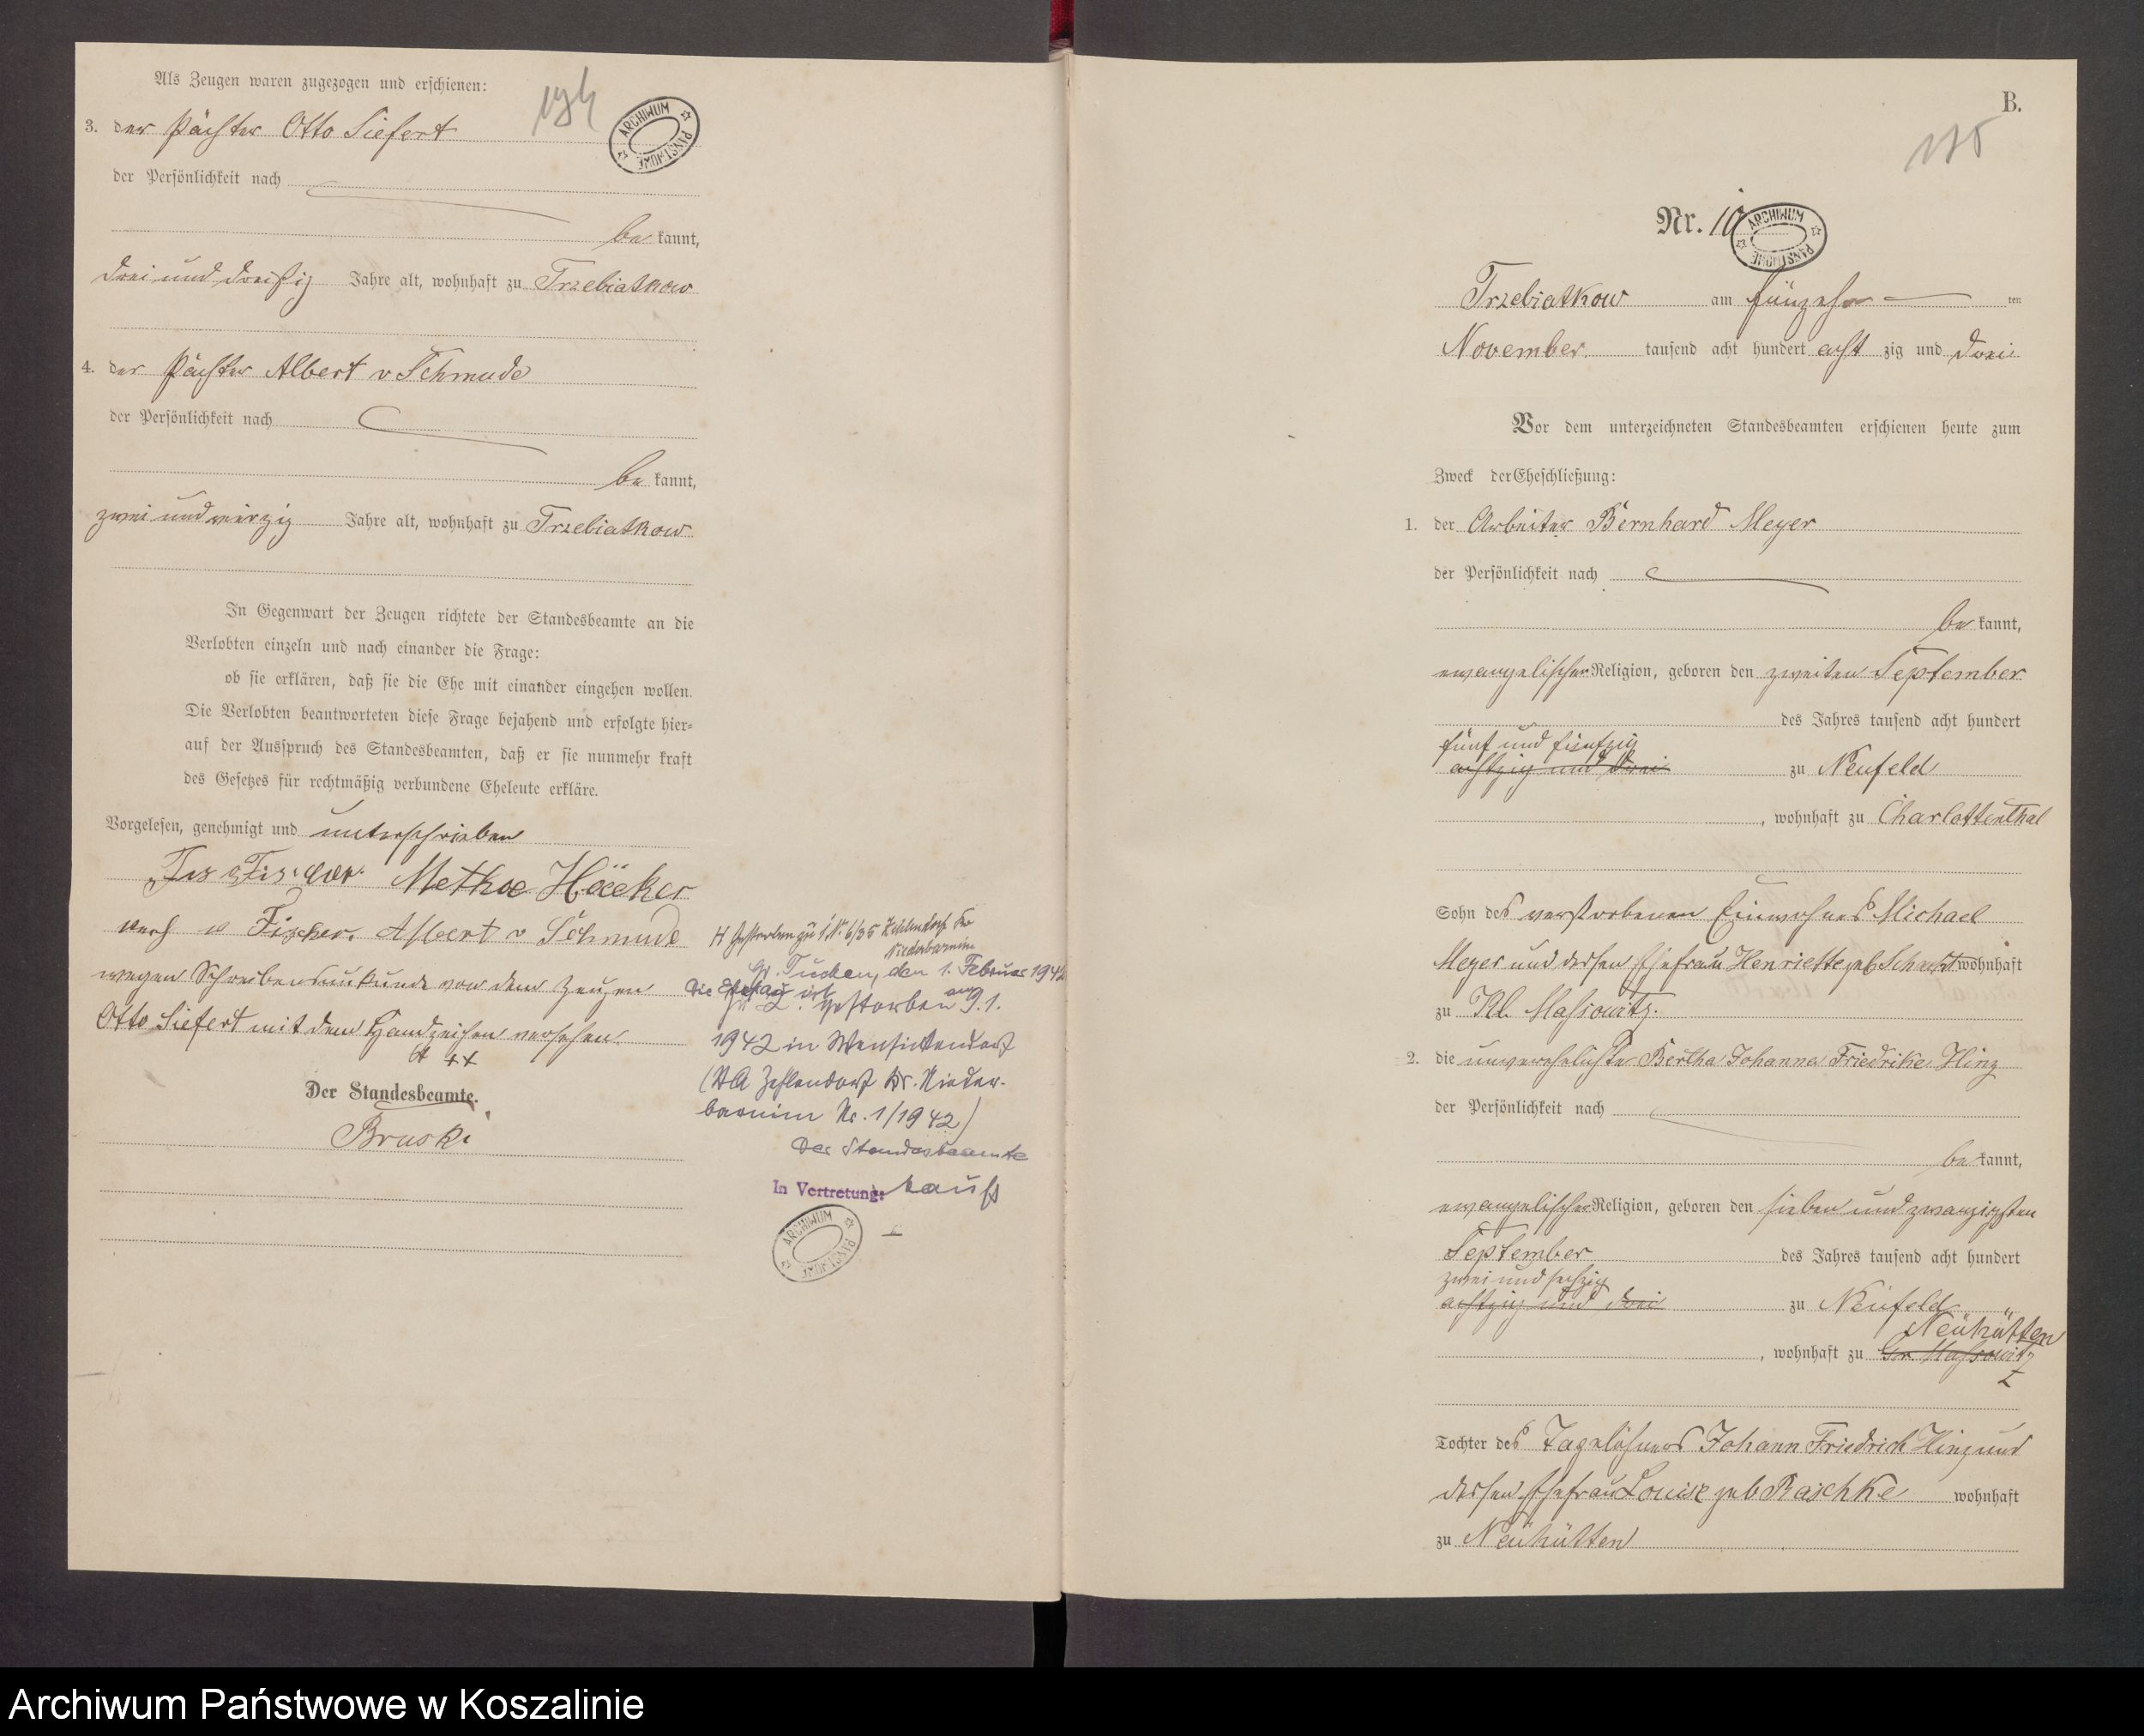 Als Zeugen waren zugezogen und erschienen:
194
ARCHIWUM PAŃSTWOWE
3. der Pächter Otto Siefert
der Persönlichkeit nach
be kannt,
drei und dreißig Jahre alt, wohnhaft zu Trzebiatkow
4. der Pächter Albert v Schmude
der Persönlichkeit nach
be kannt,
zwei und vierzig Jahre alt, wohnhaft zu Trzebiatkow
In Gegenwart der Zeugen richtete der Standesbeamte an die
Verlobten einzeln und nach einander die Frage:
ob sie erklären, daß sie die Ehe mit einander eingehen wollen.
Die Verlobten beantworteten diese Frage bejahend und erfolgte hier-
auf der Ausspruch des Standesbeamten, daß er sie nunmehr kraft
des Gesetzes für rechtmäßig verbundene Eheleute erkläre.
Vorgelesen, genehmigt und unterschrieben
Häcker
Fischer. Albert v Schmude
wegen Schreibensunkunde von dem Zeugen
Otto Siefert mit dem Handzeichen versehen.
+++
Der Standesbeamte.
Bruski
H gestorben zu 1. Nr. 6/35 Zehlendorf Kr
Niederbarnim
Gr. Tuchen, den 1. Februar 1942
Die Ehefrau ist am
zu 2. gestorben 9.1.
1942 in Wensickendorf
(StA Zehlendorf Kr. Nieder-
barnim Nr. 1/1942)
Der Standesbeamte
In Vertretung:
ARCHIWUM PAŃSTWOWE
B.
195
Nr. 10
ARCHIWUM PAŃSTWOWE
Trzebiatkow am fünfzehn ten
November tausend acht hundert acht zig und drei
Vor dem unterzeichneten Standesbeamten erschienen heute zum
Zweck der Eheschließung:
1. der Arbeiter Bernhard Meyer
der Persönlichkeit nach
be kannt,
evangelischer Religion, geboren den zweiten September
des Jahres tausend acht hundert
fünf und fünfzig
achtzig und drei zu Neufeld
, wohnhaft zu Charlottenthal
Sohn des verstorbenen Einwohners Michael
Meyer und dessen Ehefrau Henriette geb Schacht wohnhaft
zu Kl. Massowitz.
2. die unverehelichte Bertha Johanna Friedrike Hinz
der Persönlichkeit nach
be kannt,
evangelischer Religion, geboren den sieben und zwanzigsten
September des Jahres tausend acht hundert
zwei und sechzig
achtzig und drei zu Neufeld
Neuhütten
, wohnhaft zu Gr. Massowitz
Tochter des Tagelöhners Johann Friedrich Hinz und
dessen Ehefrau Louise geb Raschke wohnhaft
zu Neuhütten
Archiwum Państwowe w Koszalinie